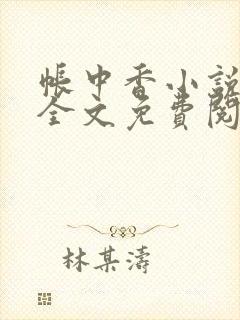 帳中香小說
全文免費閱
林某濤